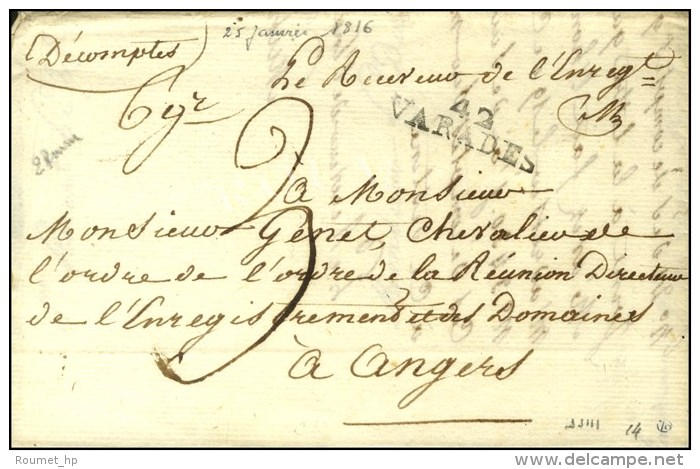 25 janvier 1816
(Décomptes)
Le Receveur de l'Enregt
42
VARADES
3
à Monsieur
Monsieur Genet, Chevalier de
l'ordre de l'ordre de la Réunion Directeur
de l'Enregistrement et des Domaines
à Angers
14
© Roumet_hp
www.delcampe.net